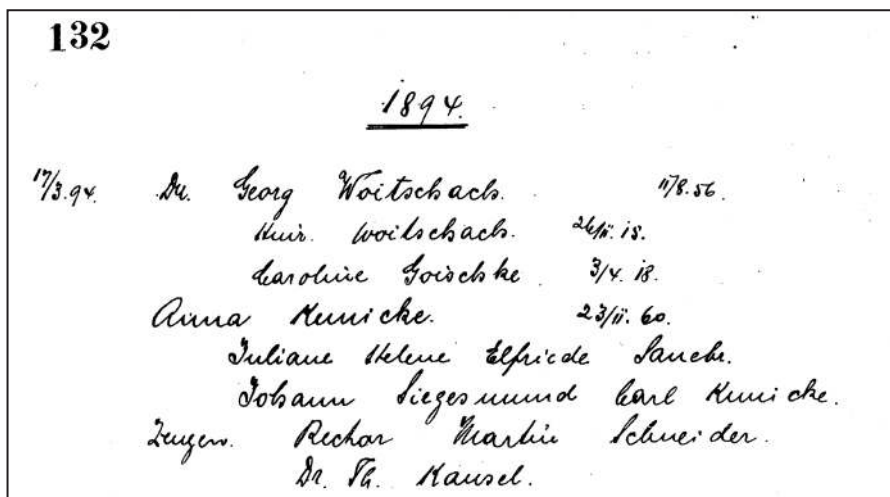 132
1894.
17/3.94. Dr. Georg Woitschach. 11/8.56.
Heinr. Woitschach. 26/11.18.
Caroline Goischke 3/4.18.
Anna Kunicke. 23/11.60.
Juliane Helene Elfriede
Johann Siegesmund Carl Kunicke.
Zeugen. Rechor Martin Schneider.
Dr. Th. Kausel.